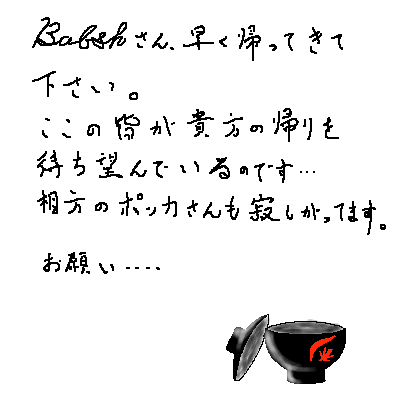 Babshさん、早く帰ってきて
下さい。
ここの皆が貴方の帰りを
待ち望んでいるのです…
相方のポッカさんも寂しがってます。
お願い‥‥